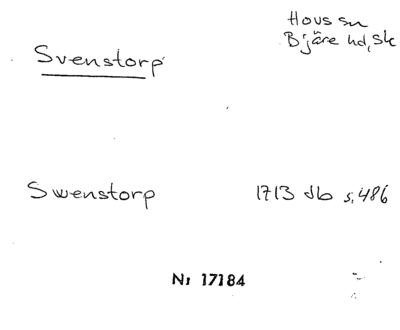 Hovs sn
Svenstorp
Bjäre hd, Sk
Swenstorp 1713 db s. 486
Nr 17184